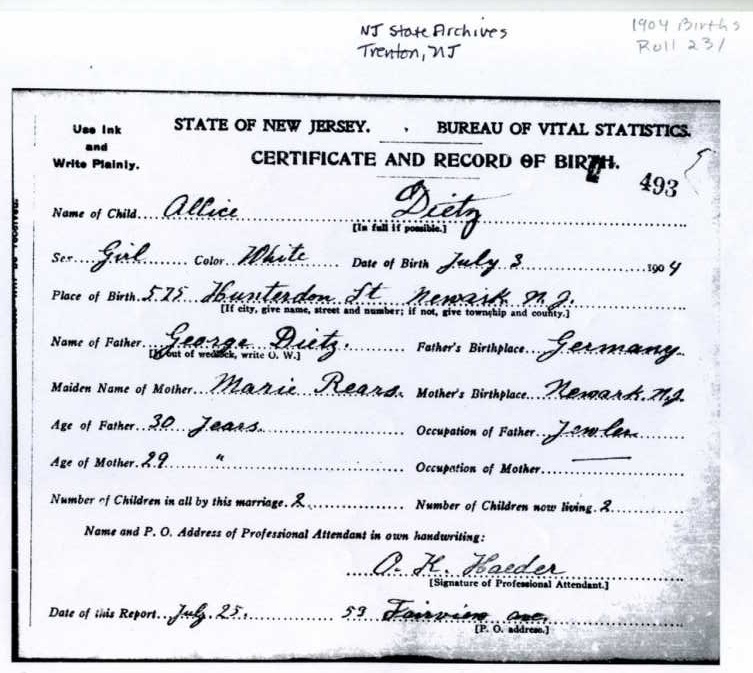 NJ State Archives
Trenton, NJ
1904 Births
Roll 231
Use Ink
and
Write Plainly.
STATE OF NEW JERSEY. BUREAU OF VITAL STATISTICS.
CERTIFICATE AND RECORD OF BIRTH.
493
Name of Child Allice Dietz
[In full if possible.]
Sex Girl Color White Date of Birth July 3 1904
Place of Birth 575 Hunterdon St Newark N.J.
[If city, give name, street and number; if not, give township and county.]
Name of Father George Dietz. Father's Birthplace Germany
[If out of wedlock, write O. W.]
Maiden Name of Mother Marie Rears. Mother's Birthplace Newark. N.J.
Age of Father 30 Years. Occupation of Father
Age of Mother 29 " Occupation of Mother —
Number of Children in all by this marriage. 2 Number of Children now living. 2
Name and P. O. Address of Professional Attendant in own handwriting:
O. K. Haeder
[Signature of Professional Attendant.]
Date of this Report July 25. 53 Fairview ave.
[P. O. address.]